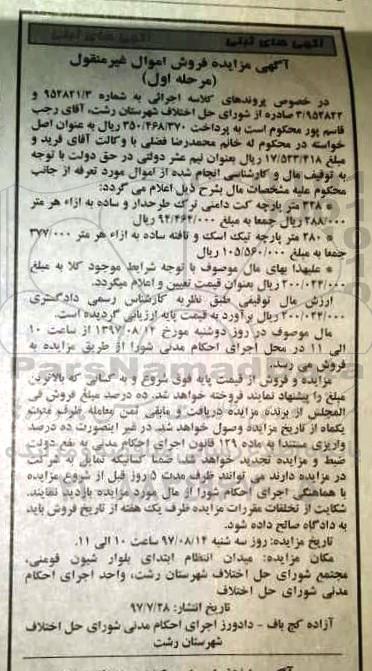 آگهی های ثبتی
آگهی های ثبتی
آگهی مزایده فروش اموال غیرمنقول
(مرحله اول)
در خصوص پروندهای کلاسه اجرائی به شماره ۹۵۲۸۲۱/۳ و
۳/۹۵۲۸۲۲ صادره از شورای حل اختلاف شهرستان رشت، آقای رجب
قاسم پور محکوم است به پرداخت ۳۵۰/۴۶۸/۳۷۰ ریال به عنوان اصل
خواسته در محکوم له خانم محمدرضا فضلی با وکالت آقای فرید و
مبلغ ۱۷/۵۲۳/۴۱۸ ریال بعنوان نیم عشر دولتی در حق دولت با توجه
به توقیف مال و کارشناسی انجام شده از اموال مورد تعرفه از جانب
محکوم علیه مشخصات مال بشرح ذیل اعلام می گردد:
* ۳۲۸ متر پارچه کت دامنی ترک طرحدار و ساده به ازاء هر متر
۲۸۸/۰۰۰ ریال جمعا به مبلغ ۹۴/۴۶۴/۰۰۰ ریال
* ۲۸۰ متر پارچه تیک اسک و تافته ساده به ازاء هر متر ۳۷۷/۰۰۰
جمعا به مبلغ ۱۰۵/۵۶۰/۰۰۰ ریال
* علیهذا بهای مال موصوف با توجه شرایط موجود کلا به مبلغ
۲۰۰/۰۲۴/۰۰۰ ریال بعنوان قیمت تعیین و اعلام میگردد.
ارزش مال توقیفی طبق نظریه کارشناس رسمی دادگستری
۲۰۰/۰۲۴/۰۰۰ ریال برآورد به قیمت پایه ارزیابی گردیده است.
مال موصوف در روز دوشنبه مورخ ۱۳۹۷/۰۸/۱۴ از ساعت ۱۰
الی ۱۱ در محل اجرای احکام مدنی شورا از طریق مزایده به
فروش می رسد.
مزایده و فروش از قیمت پایه فوق شروع و به کسانی که بالاترین
مبلغ را پیشنهاد نمایند فروخته خواهد شد. ده درصد مبلغ فروش فی
المجلس از برنده مزایده دریافت و مابقی ثمن معامله ظرف مدت
یکماه از تاریخ مزایده وصول خواهد شد. در غیر اینصورت ده درصد
واریزی مستندا به ماده ۱۲۹ قانون اجرای احکام مدنی به نفع دولت
ضبط و مزایده تجدید خواهد شد ضمنا کسانیکه تمایل به شرکت
در مزایده دارند می توانند ظرف مدت ۵ روز قبل از شروع مزایده
با هماهنگی اجرای احکام شورا از مال مورد مزایده بازدید نمایند.
شکایت از تخلفات مقررات مزایده ظرف یک هفته از تاریخ فروش باید
به دادگاه صالح داده شود.
تاریخ مزایده: روز سه شنبه ۹۷/۰۸/۱۴ ساعت ۱۰ الی ۱۱.
مکان مزایده: میدان انتظام ابتدای بلوار شیون فومنی،
مجتمع شورای حل اختلاف شهرستان رشت، واحد اجرای احکام
مدنی شورای حل اختلاف
تاریخ انتشار: ۹۷/۷/۲۸
آزاده کج باف - دادورز اجرای احکام مدنی شورای حل اختلاف
شهرستان رشت